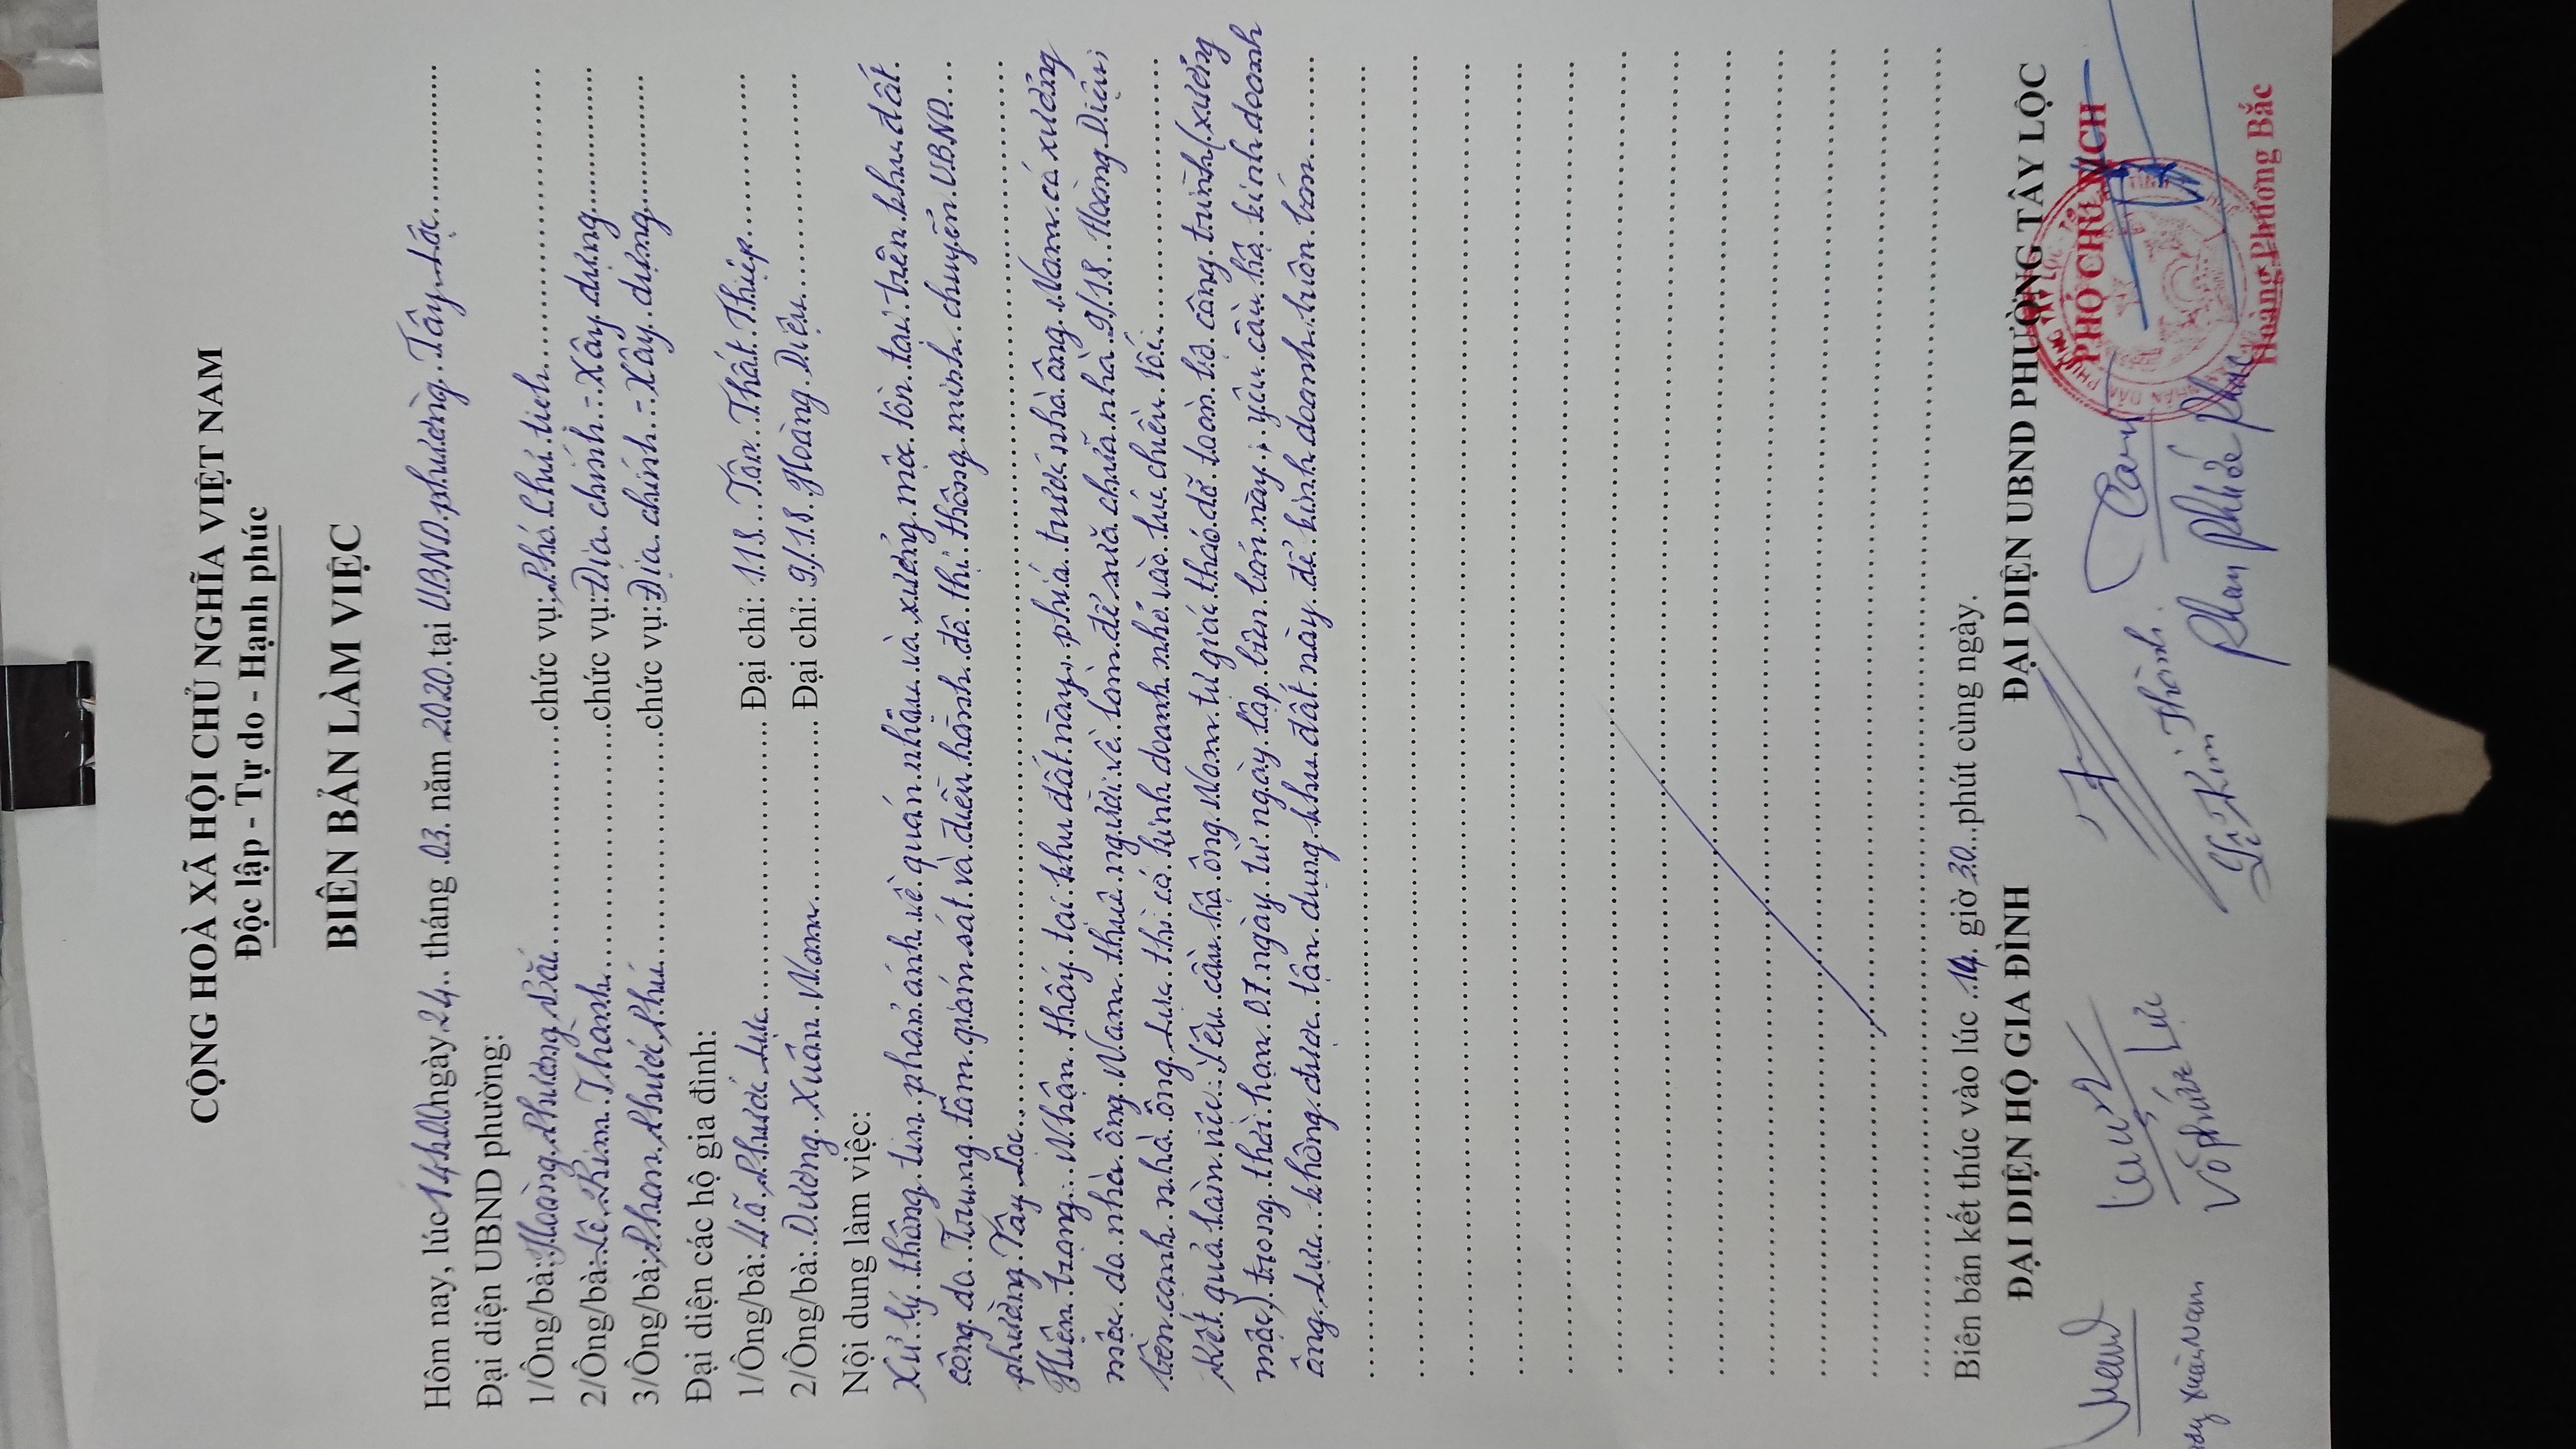 CỘNG HOÀ XÃ HỘI CHỦ NGHĨA VIỆT NAM
Độc lập - Tự do - Hạnh phúc
BIÊN BẢN LÀM VIỆC
Hôm nay, lúc 14h00 ngày 24 tháng 03 năm 2020 tại UBND phường Tây Lộc
Đại diện UBND phường:
1/Ông/bà: Hoàng Phương Bắc chức vụ: Phó Chủ tịch
2/Ông/bà: Lê Kim Thành chức vụ: Địa chính - Xây dựng
3/Ông/bà: Phan Phước Phú chức vụ: Địa chính - Xây dựng
Đại diện các hộ gia đình:
1/Ông/bà: Võ Phước Lực Đại chỉ: 118 Tôn Thất Thiệp
2/Ông/bà: Dương Xuân Nam Đại chỉ: 9/18 Hoàng Diệu
Nội dung làm việc:
Xử lý thông tin phản ánh về quán nhậu và xưởng mộc tồn tại trên khu đất
công do Trung tâm giám sát và điều hành đô thị thông minh chuyển UBND
phường Tây Lộc
Hiện trạng: Nhận thấy tại khu đất này, phía trước nhà ông Nam có xưởng
mộc do nhà ông Nam thuê người về làm để sửa chữa nhà 9/18 Hoàng Diệu;
bên cạnh nhà ông Lực thì có kinh doanh nhỏ vào lúc chiều tối.
Kết quả làm việc: Yêu cầu hộ ông Nam tự giác tháo dỡ toàn bộ công trình (xưởng
mộc) trong thời hạn 07 ngày từ ngày lập biên bản này; yêu cầu hộ kinh doanh
ông Lực không được tận dụng khu đất này để kinh doanh buôn bán
Biên bản kết thúc vào lúc 14 giờ 30 phút cùng ngày.
ĐẠI DIỆN HỘ GIA ĐÌNH ĐẠI DIỆN UBND PHƯỜNG TÂY LỘC
PHÓ CHỦ TỊCH
Xuân Nam Võ Phước Lực Lê Kim Thành Phan Phước Phú
Hoàng Phương Bắc